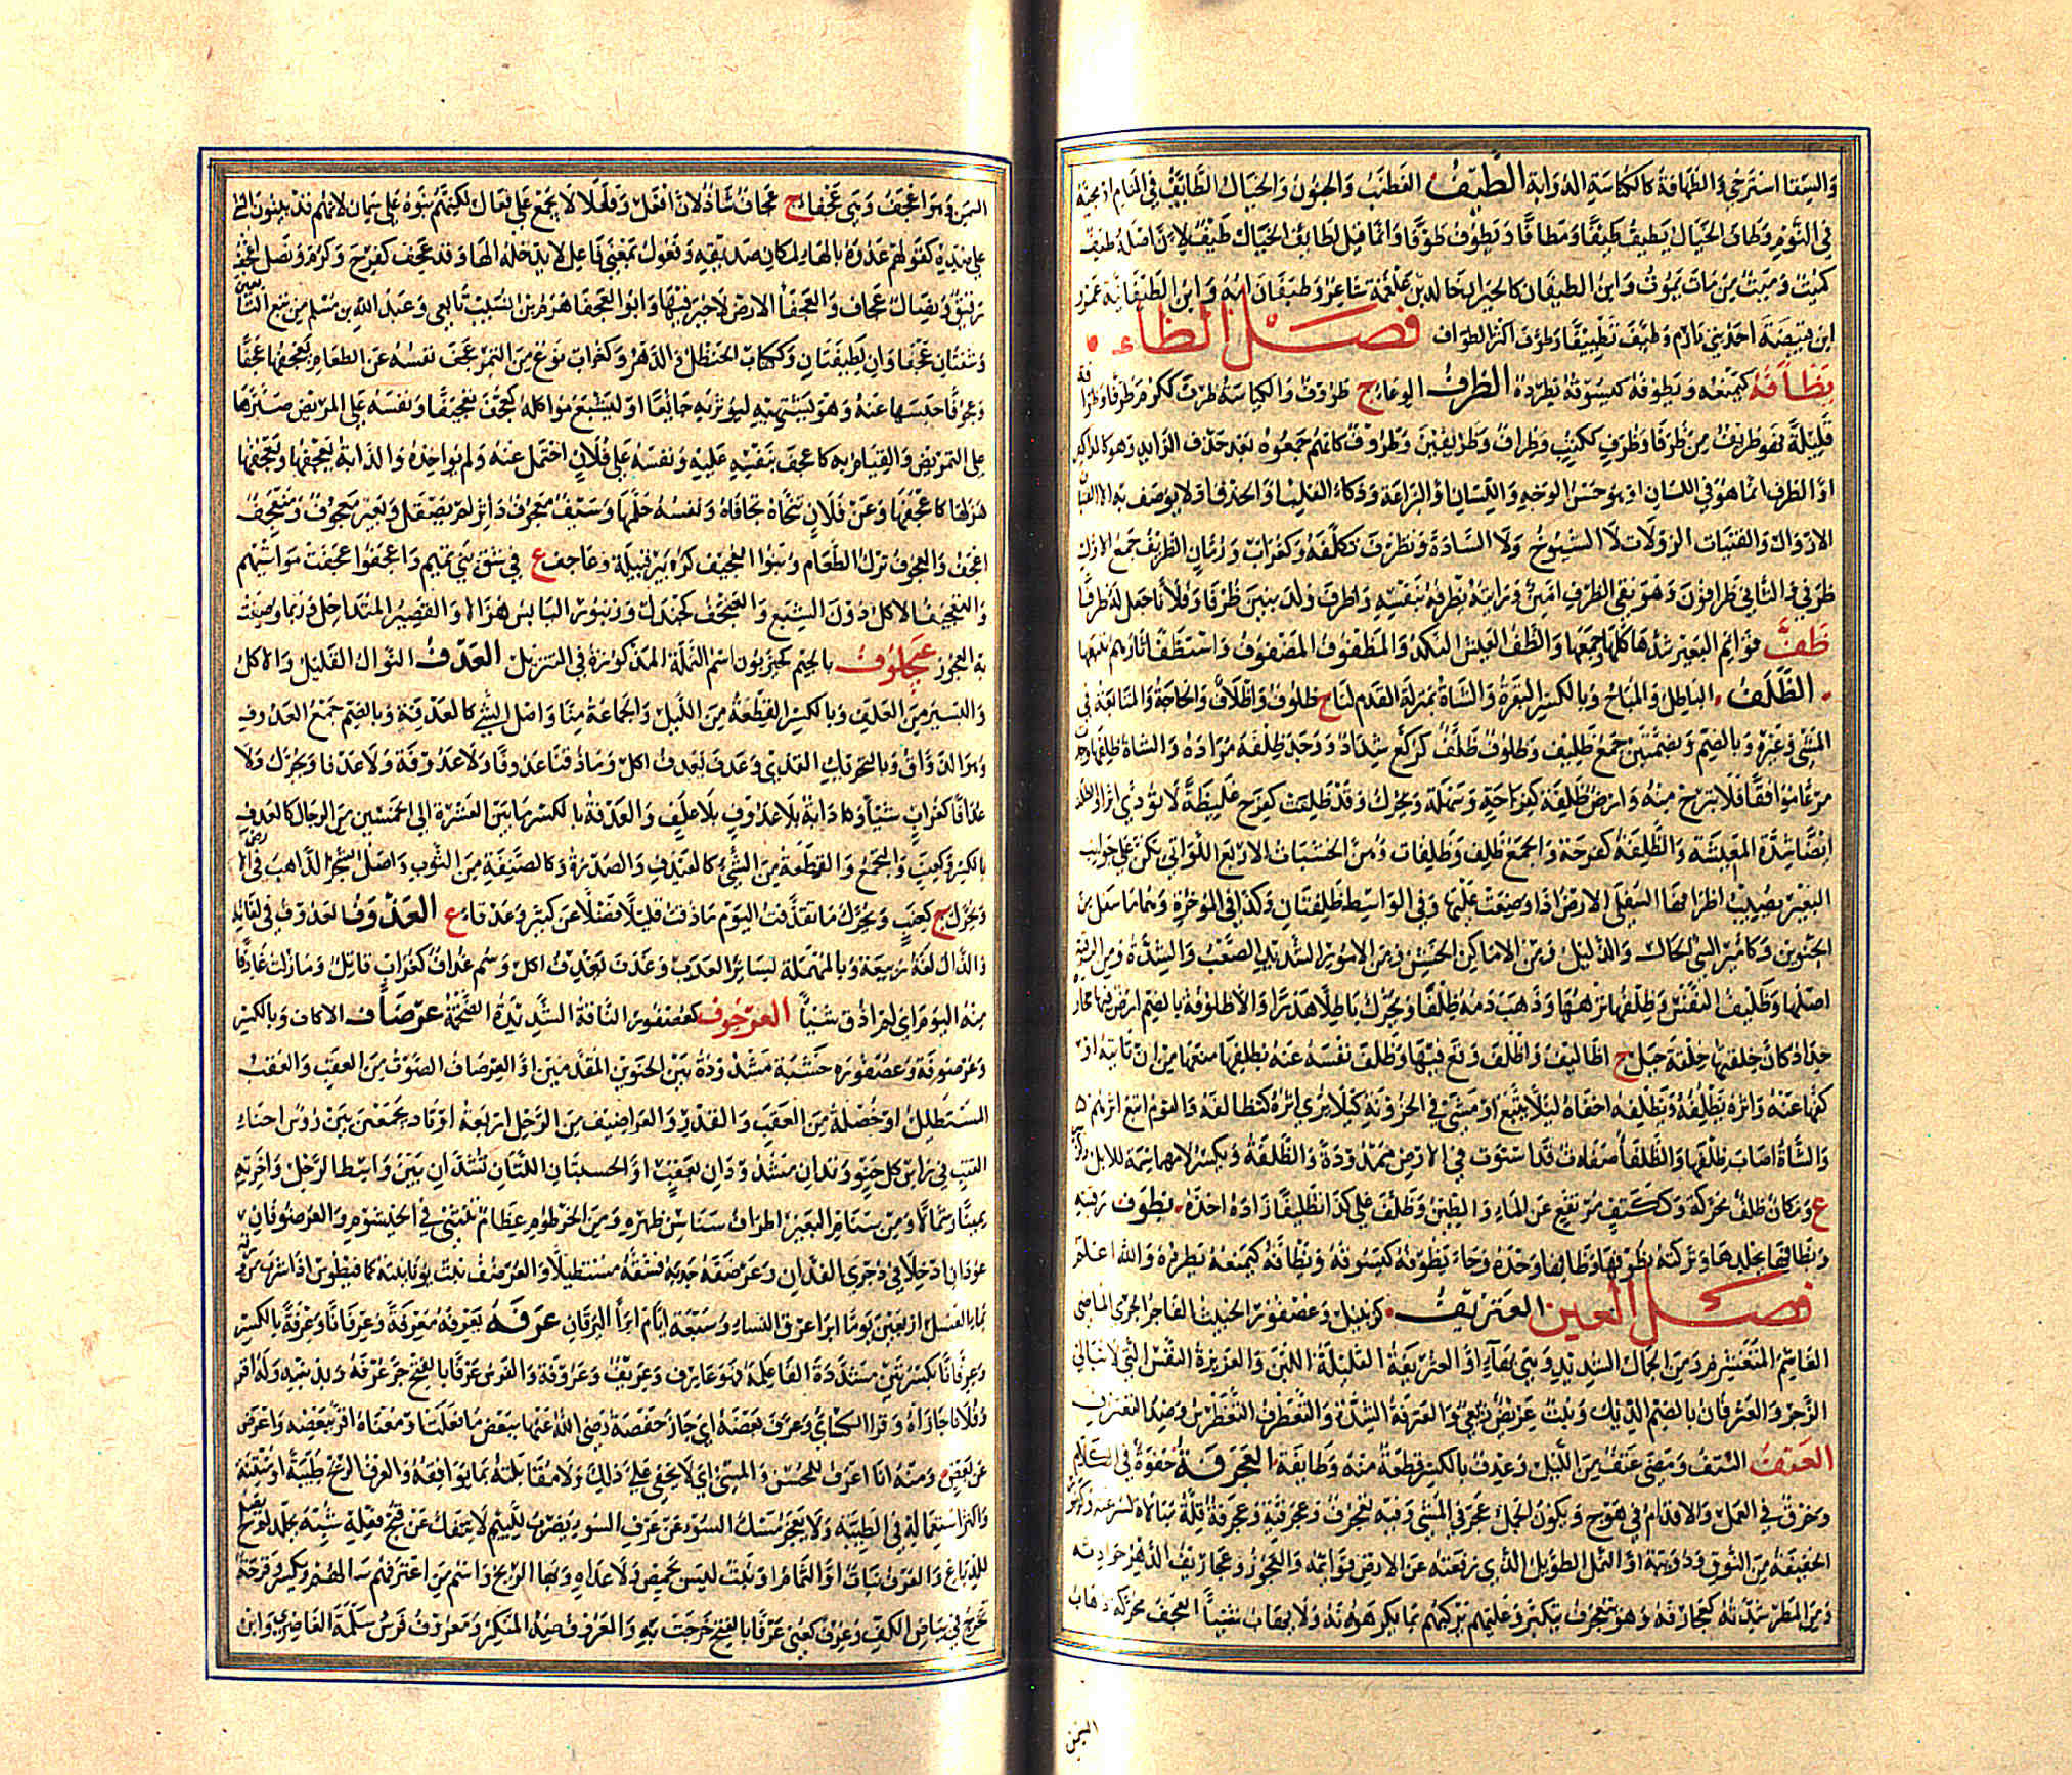 والسقا استرخي والطهافة كالكناسة الدوابة الطيف الغضب والجنون والخيال الطايف في المنام او مجيئه
في النوم وطاف الخيال يطيف طيفا ومطافا ويطوف طوفا وانما قيل لطايف الخيال طيف لان اصله طيف
كميت وميت من مات يموت وابن الطيفان كالحيران خالد بن علقمة شاعر وطيفان امه وابن الطيفانية عمرو
ابن قبيصة احد بني دارم وطيف تطييفا وطوف اكثر الطواف فصل الظاء
يظافه كيمنعه ويظوفه كيسوقه يطرده الظرف الوعاء ج ظروف والكياسة ظرف ككرم ظرفا وظرافة
قليلة فهو ظريف من ظرفا وظرف ككتب وظراف وظريفين وظروف كانهم جمعوه بعد حذف الزايد وهو كالمذاكير
او الظرف انما هو في اللسان او هو حسن الوجه واللسان او البزاعة وذكاء القلب او الحذق او لا يوصف به الا الفتيان
الازوال والفتيات الزولات لا الشيوخ ولا السادة وتظرف تكلفه وكغراب ورمان الظريف جمع الاول
ظرفي والثاني ظرافون وهو نقي الظرف امين ورايته بظرفه بنفسه واظرف ولد بنين ظرفا وفلانا جعل له ظرفا
ظف قوايم البعير شدها كلها وجمعها والظف العيش النكد والمظفوف المضفوف واستظف اثارهم تتبعها
الظلف الباطل والمباح وبالكسر للبقرة والشاة بمنزلة القدم لنا ج ظلوف واظلاف والحاجة والمتابعة في
المشي وغيره وبالضم وبضمتين جمع ظليف وظلوف ظلف كركع شداد ووجد ظلفه مراده والشاة ظلفها وجدت
مرعا موافقا فلا تبرح منه وارض ظلفة كفرحة وسهلة ويحرك وقد ظلفت كفرح غليظة لا تودي اثرا والظلف
ايضا شدة المعيشة والظلفة كفرحة والجمع ظلف وظلفات وهن الخشبات الاربع اللواتي يكن على جوانب
البعير يصيب اطرافها السفلي الارض اذا وضعت عليها وفي الواسط ظلفتان وكذا في الموخرة وهما ما سفل من
الحنوين وكامير السي الحال والذليل ومن الاماكن الخشن ومن الامور الشديد الصعب والشدة ومن الرقبة
اصلها وظليف النفس وظلفها نزهها وذهب دمه ظلفا ويحرك باطلا هدرا والاظلوفة بالضم ارض فيها حجارة
حداد كان خلقتها خلقة جبل ج اظاليف واظلف وقع فيها وظلف نفسه عنه يظلفها منعها من ان تاتيه او
كفها عنه واثره يظلفه ويظلفه اخفاه ليلا يتبع او مشى في الحزونة كيلا يرى اثره كظالفه والقوم اتبع اثرهم
والشاة اصاب ظلفها والظلفا صفاة قد استوت في الارض ممدودة والظلفة وبكسر لامها سمة للابل
ع ومكان ظلف محركة وككتف مرتفع عن الماء والطين وظلف على كذا تظليفا زاده اخذه بظوف رقبته
وبظافها بجلدها وتركته بظوفها وظافها وحده وجاء يظوفه كيسوقه ويظافه كيمنعه يطرده والله اعلم
فصل العين العتريف كزنبيل وعصفور الخبيث الفاجر الجرى الماضي
الغاشم المتغشمر ومن الجمال الشديد وهي بهاء او العتريفة القليلة اللبن والعزيزة النفس التي لا تبالي
الزجر والعترفان بالضم الديك ونبت عريض ربيعي والعترفة الشدة والتعترف التغطرس وضد التعفرت
العتف النتف ومضى عتف من الليل وعدف بالكسر قطعة منه وطايفة العجرفة جفوة في الكلام
وخرق في العمل والاقدام في هوج ويكون الجمل عجرفي المشي وفيه تعجرف وعجرفية وعجرفة قلة مبالاة لسرعته
الخفيفة من النوق ودويبة او النمل الطويل الذي رفعته عن الارض قوايمه والعجوز وعجاريف الدهر حوادثه
ومن المطر شدته كعجارفه وهو يتعجرف يتكبر وعليهم يركبهم بما يكرهونه ولا يهاب شيئا العجف محركة ذهاب
السمن
السمن وهو اعجف وهي عجفا ج عجاف شاذ لان افعل وفعلا لا يجمع على فعال لكنهم بنوه على سمان لانهم قد يبنون الشي
على ضده كقولهم عدوة بالهاء لمكان صديقة وفعول بمعنى فاعل لا يدخله الها وقد عجف كفرح وكرم ونصل اعجف
رقيق ونصال عجاف والعجفا الارض لا خير فيها وابو العجفا هرم بن نسيب تابعي وعبد الله بن مسلم من تبع التابعين
وشفتان عجفاوان لطيفتان وككتاب الحنظل والدهر وكغراب نوع من التمر عجف نفسه عن الطعام يعجفها عجفا
وعجوفا حبسها عنه وهو يشتهيه ليوثر به جايعا او ليشبع مواكله كعجف تعجيفا ونفسه على المريض صبرها
على التمريض والقيام به كاعجف بنفسه عليه ونفسه على فلان احتمل عنه ولم يواخذه والدابة يعجفها ويعجفها
هزلها كاعجفها وعن فلان تنحاه تجافاه ونفسه حلمها وسيف معجوف داثر لم يصقل وبعير معجوف ومنعجف
اعجف والعجوف ترك الطعام وبنوا العجيف كزبير قبيلة وعاجف ع في شق بني تميم واعجفوا عجفت مواشيهم
والتعجيف الاكل دون الشبع والعنجف كجندل وزنبور اليابس هزالا والقصير المتداخل وربما وصفت
به العجوز عجلوف بالجيم كحيزبون اسم النملة المذكورة في التنزيل العدف النوال القليل والاكل
واليسير من العلف وبالكسر القطعة من الليل والجماعة منا واصل الشي كالعدفة وبالضم جمع العدوف
وهو الذواق وبالتحريك القذى وعدف يعدف اكل وما ذقنا عدوفا ولا عدوفة ولا عدفا ويحرك ولا
عدافا كغراب شيئا وكا دابة بلا عدوف بلا علف والعدفة بالكسر ما بين العشرة الى الخمسين من الرجال كالعدف
بالكسر وكعنب والتجمع والقطعة من الشي كالعيدف والصدرة وكالصنفة من الثوب واصل الشجر الذاهب في الارض
ويحرك ج كعنب ويحرك ما تعدفت اليوم ما ذقت قليلا فضلا عن كثير وعدفاء ع العذوف العدوف في لغاته
والذال لغة ربيعة وبالمهملة لساير العرب وعذف يعذف اكل وسم عذاف كغراب قاتل وما زلت عاذفا
منه اليوم اي لم اذق شيئا العرجوف كعصفور الناقة الشديدة الضخمة عرصاف الاكاف وبالكسر
وعرصوفه وعصفوره خشبة مشدودة بين الحنوين المقدمين او العرصاف الصوت من العقب والعقب
المستطيل او خصلة من العقب والقد والعراصيف من الرحل اربعة اوتاد يجمعن بين روس احناء
القتب في راس كل حنو وتدان مشدودان بعقب او الخشبتان اللتان تشدان بين واسط الرحل واخرته
يمينا وشمالا ومن سنام البعير اطراف سناسن ظهره ومن الخرطوم عظام تنثني في الخيشوم والعرصوفان
عودان ادخلا في دجري الفدان وعرصفه جذبه فشقه مستطيلا والعرصف نبت يونانيته كما فيطوس اذا شرب مرقه
بماء العسل اربعين يوما ابرا عرق النساء وسبعة ايام ابرا اليرقان عرفه يعرفه معرفة وعرفانا وعرفة بالكسر
وعرفانا بكسرتين مشددة الفا علمه فهو عارف وعريف وعروفة والفرس عرفا بالفتح جز عرفه وبذنبه وله اقر
وفلانا جازاه وقرا الكسائي وعرف بعضه اي جاز حفصة رضي الله عنها ببعض ما فعلت ومعناه اقر ببعضه واعرض
عن بعض ومنه انا اعرف للمحسن والمسي اي لا يخفى علي ذلك ولا مقابلته بما يوافقه والعرف الريح طيبة او منتنة
واكثر استعماله في الطيبة ولا يعجز مسك السوء عن عرف السوء يضرب للئيم لا ينفك عن قبح فعله شبه بجلد لم يصلح
للدباغ والعرف نبات او الثمام او نبت ليس بحمض ولا عضاه وبها الريح واسم من اعترفهم سالهم وبكسر وقرحة
تخرج في بياض الكف وعرف كعني عرفا بالفتح خرجت به والمعروف ضد المنكر ومعروف فرس سلمة الغاضري وابن